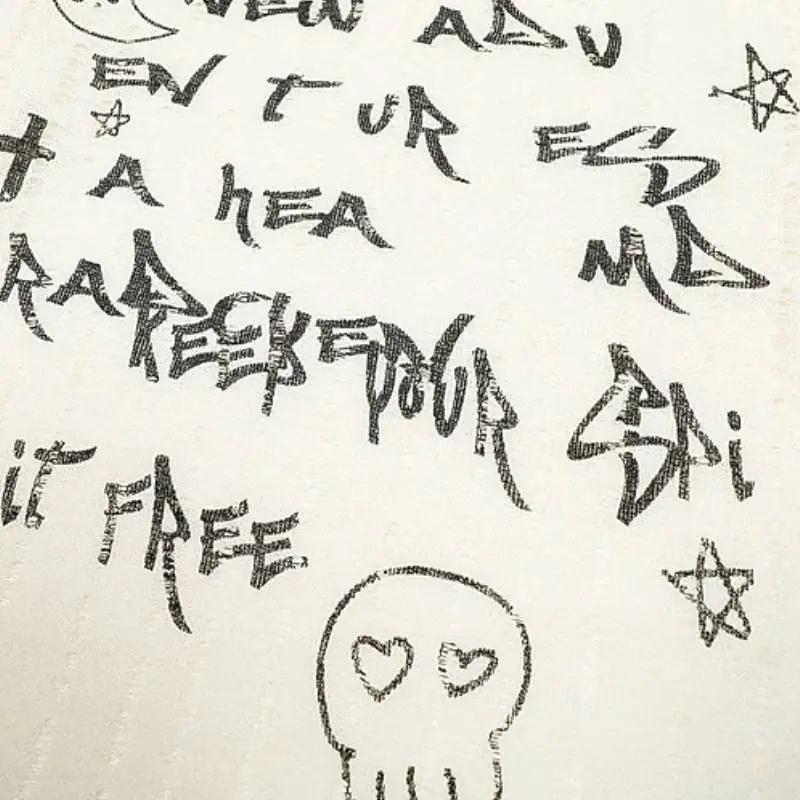 NEW ADV
ENTURES
T A hEA
MD
RAD KEEP YOUR SPi
iT FREE